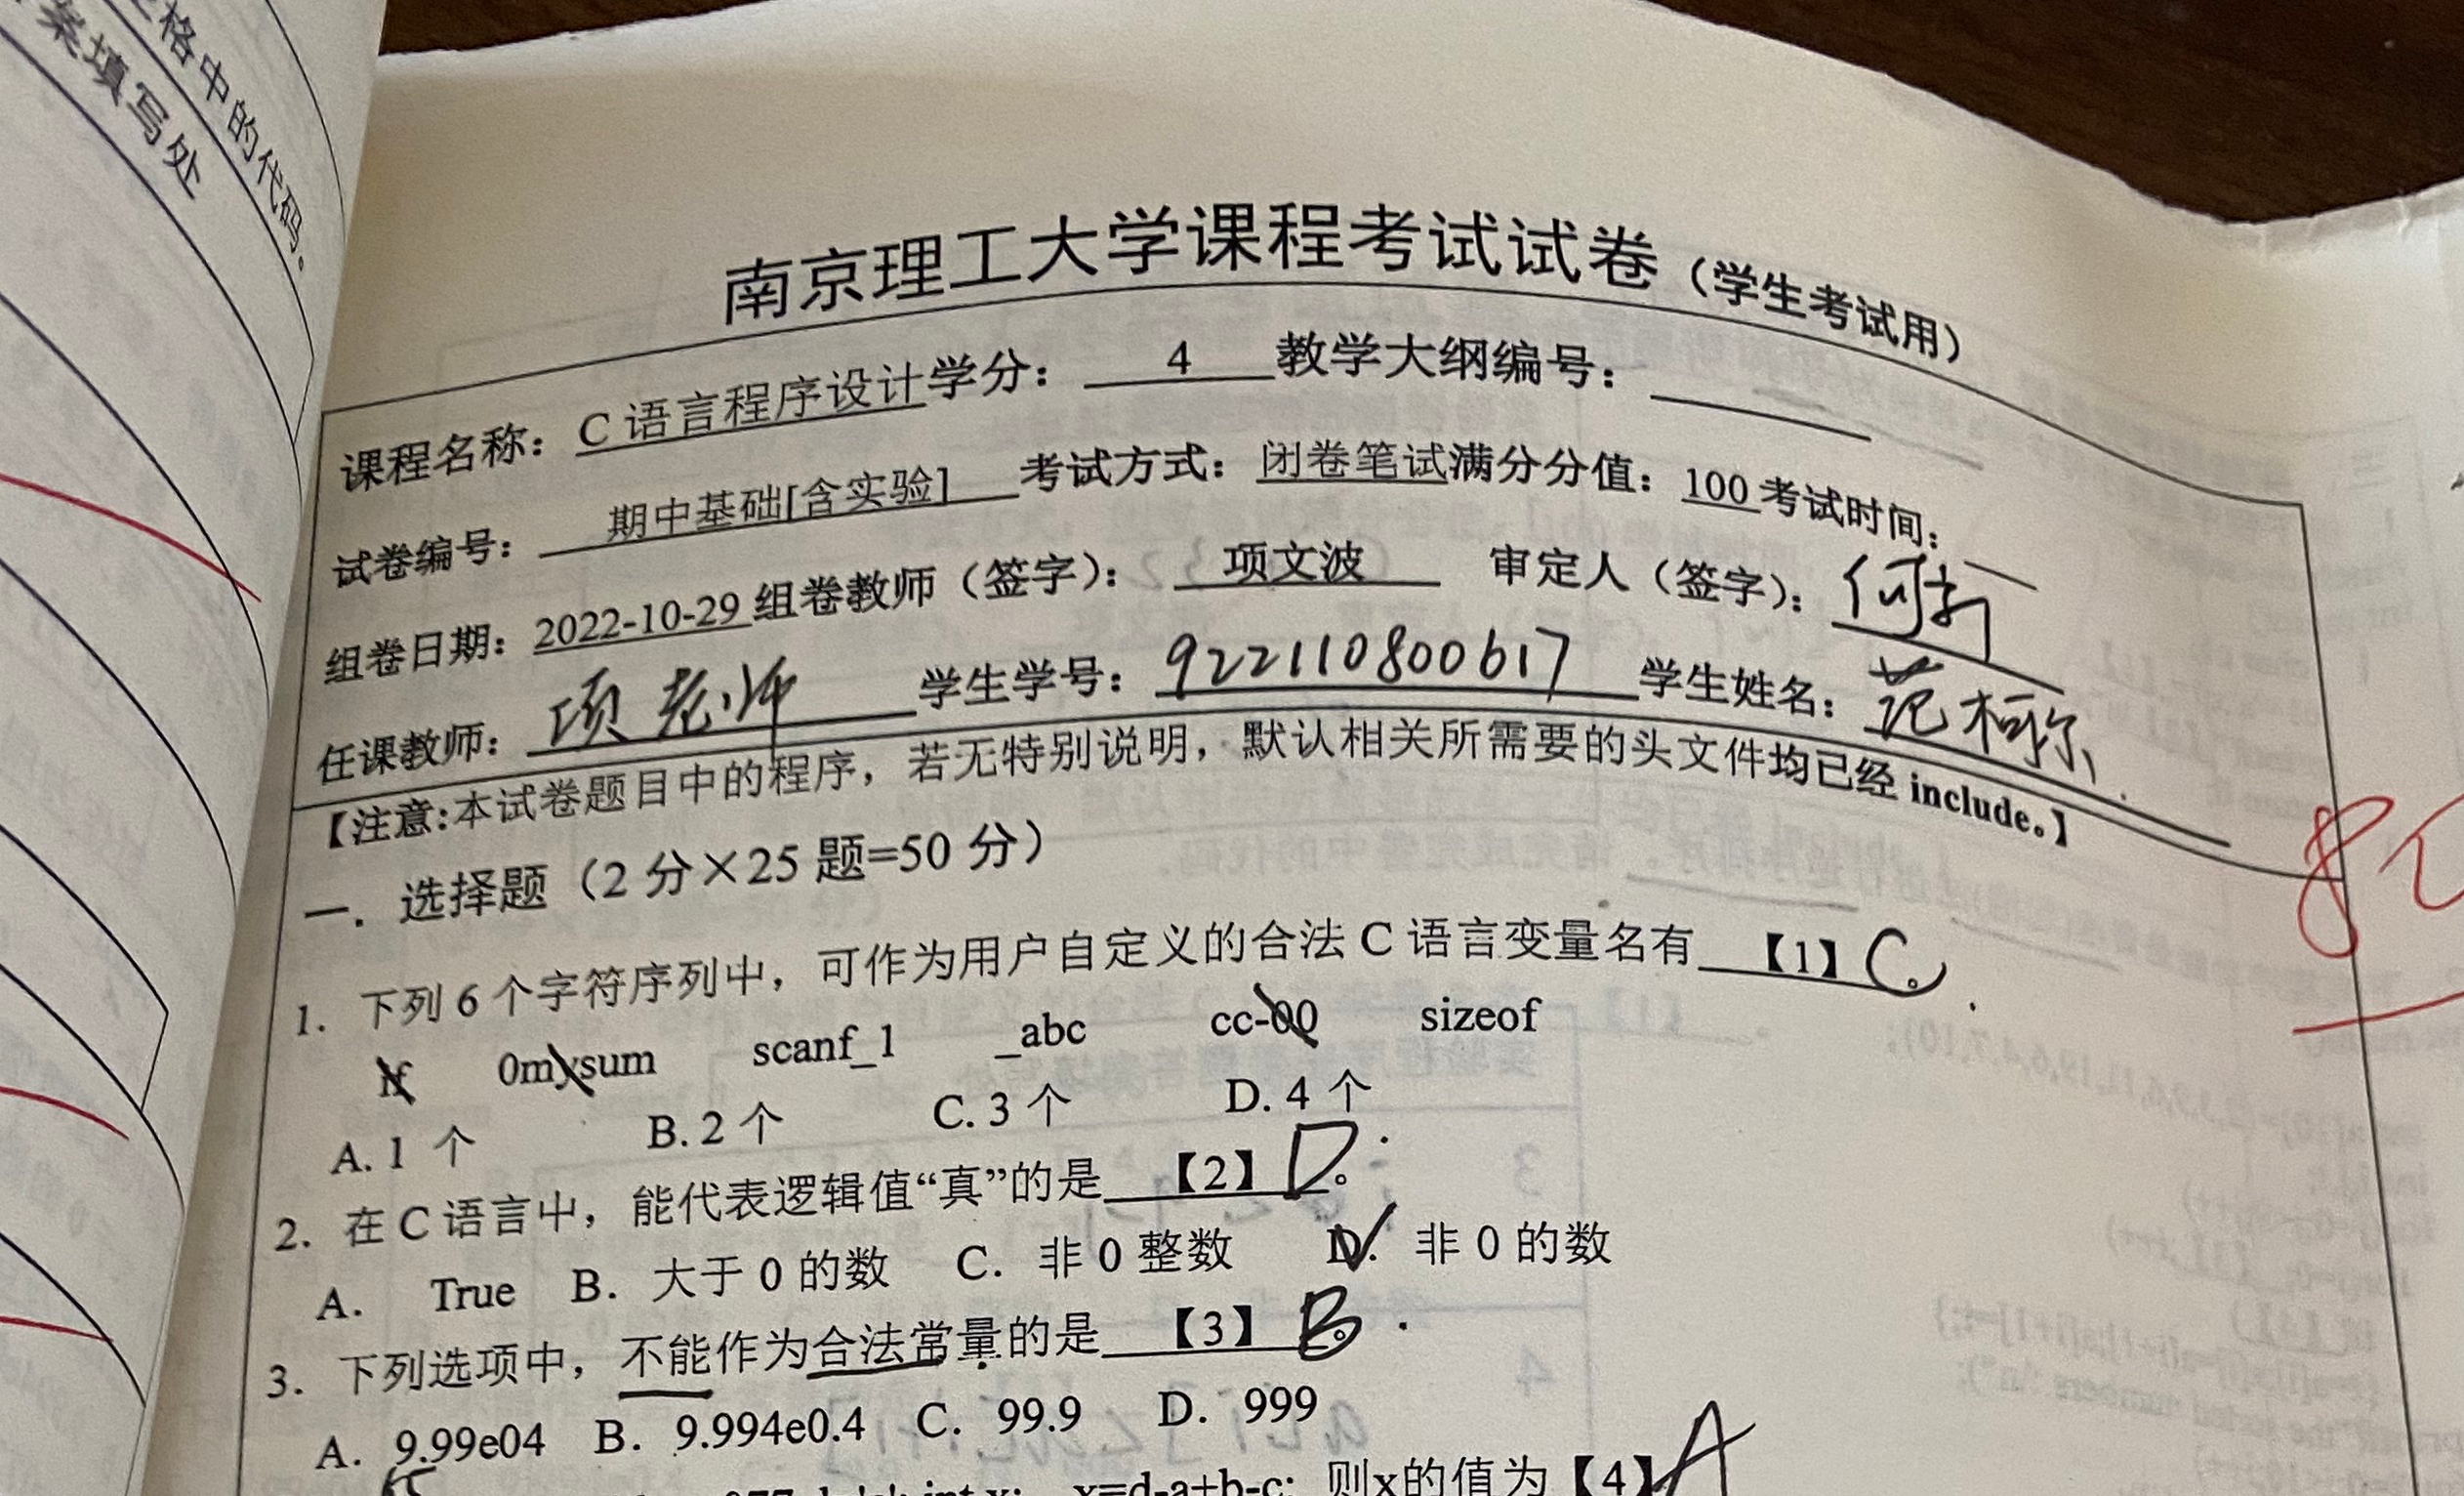 格中的代码。
案填写处
南京理工大学课程考试试卷（学生考试用）
课程名称：C 语言程序设计学分：4教学大纲编号：
试卷编号：期中基础[含实验]考试方式：闭卷笔试满分分值：100考试时间：
组卷日期：2022-10-29组卷教师（签字）：项文波 审定人（签字）：何新
任课教师：项老师 学生学号：922110800617 学生姓名：范
【注意:本试卷题目中的程序，若无特别说明，默认相关所需要的头文件均已经 include。】
一. 选择题（2 分×25 题=50 分）
1. 下列 6 个字符序列中，可作为用户自定义的合法 C 语言变量名有【1】C。
if 0mysum scanf_1 _abc cc-00 sizeof
A. 1 个 B. 2 个 C. 3 个 D. 4 个
2. 在 C 语言中，能代表逻辑值“真”的是【2】D。
A. True B. 大于 0 的数 C. 非 0 整数 D. 非 0 的数
3. 下列选项中，不能作为合法常量的是【3】B。
A. 9.99e04 B. 9.994e0.4 C. 99.9 D. 999
int x; x=d-a+b-c; 则x的值为【4】A